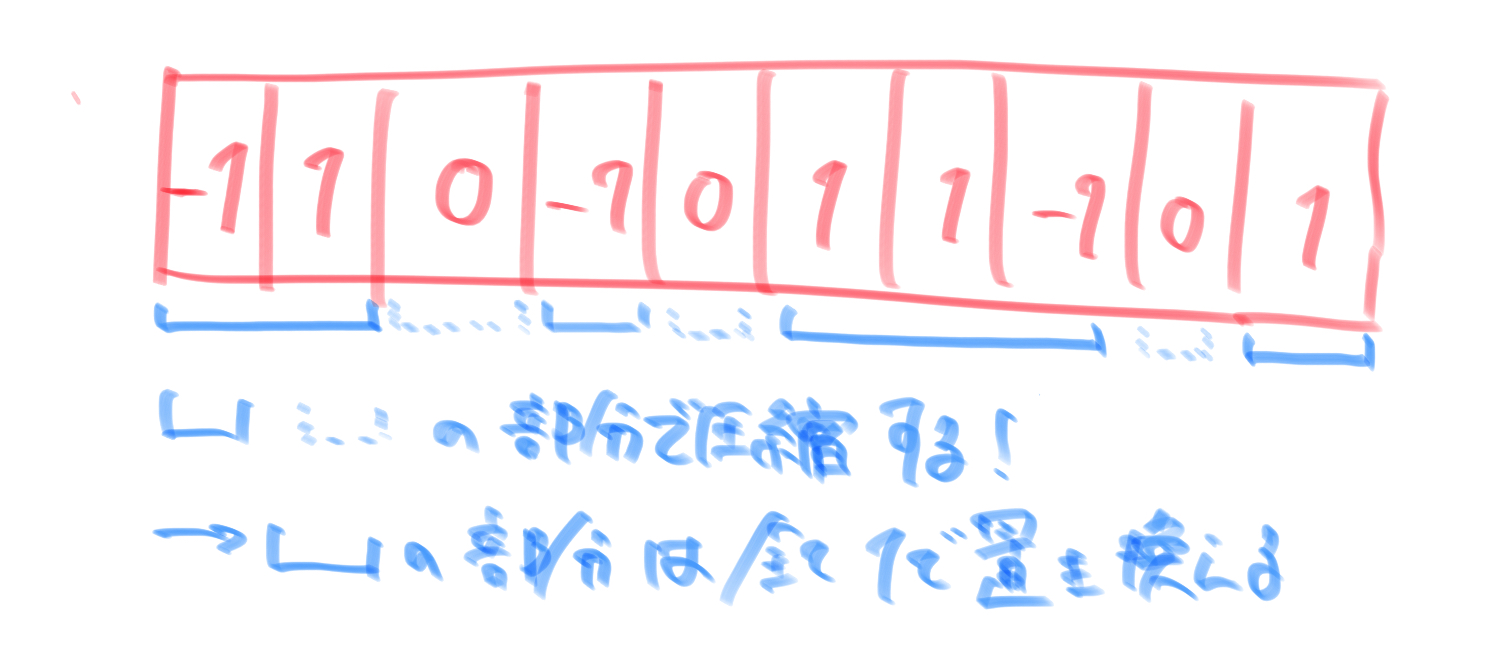 -1 1 0 -1 0 1 1 -1 0 1
の部分で圧縮する!
→ の部分は全て1で置き換える